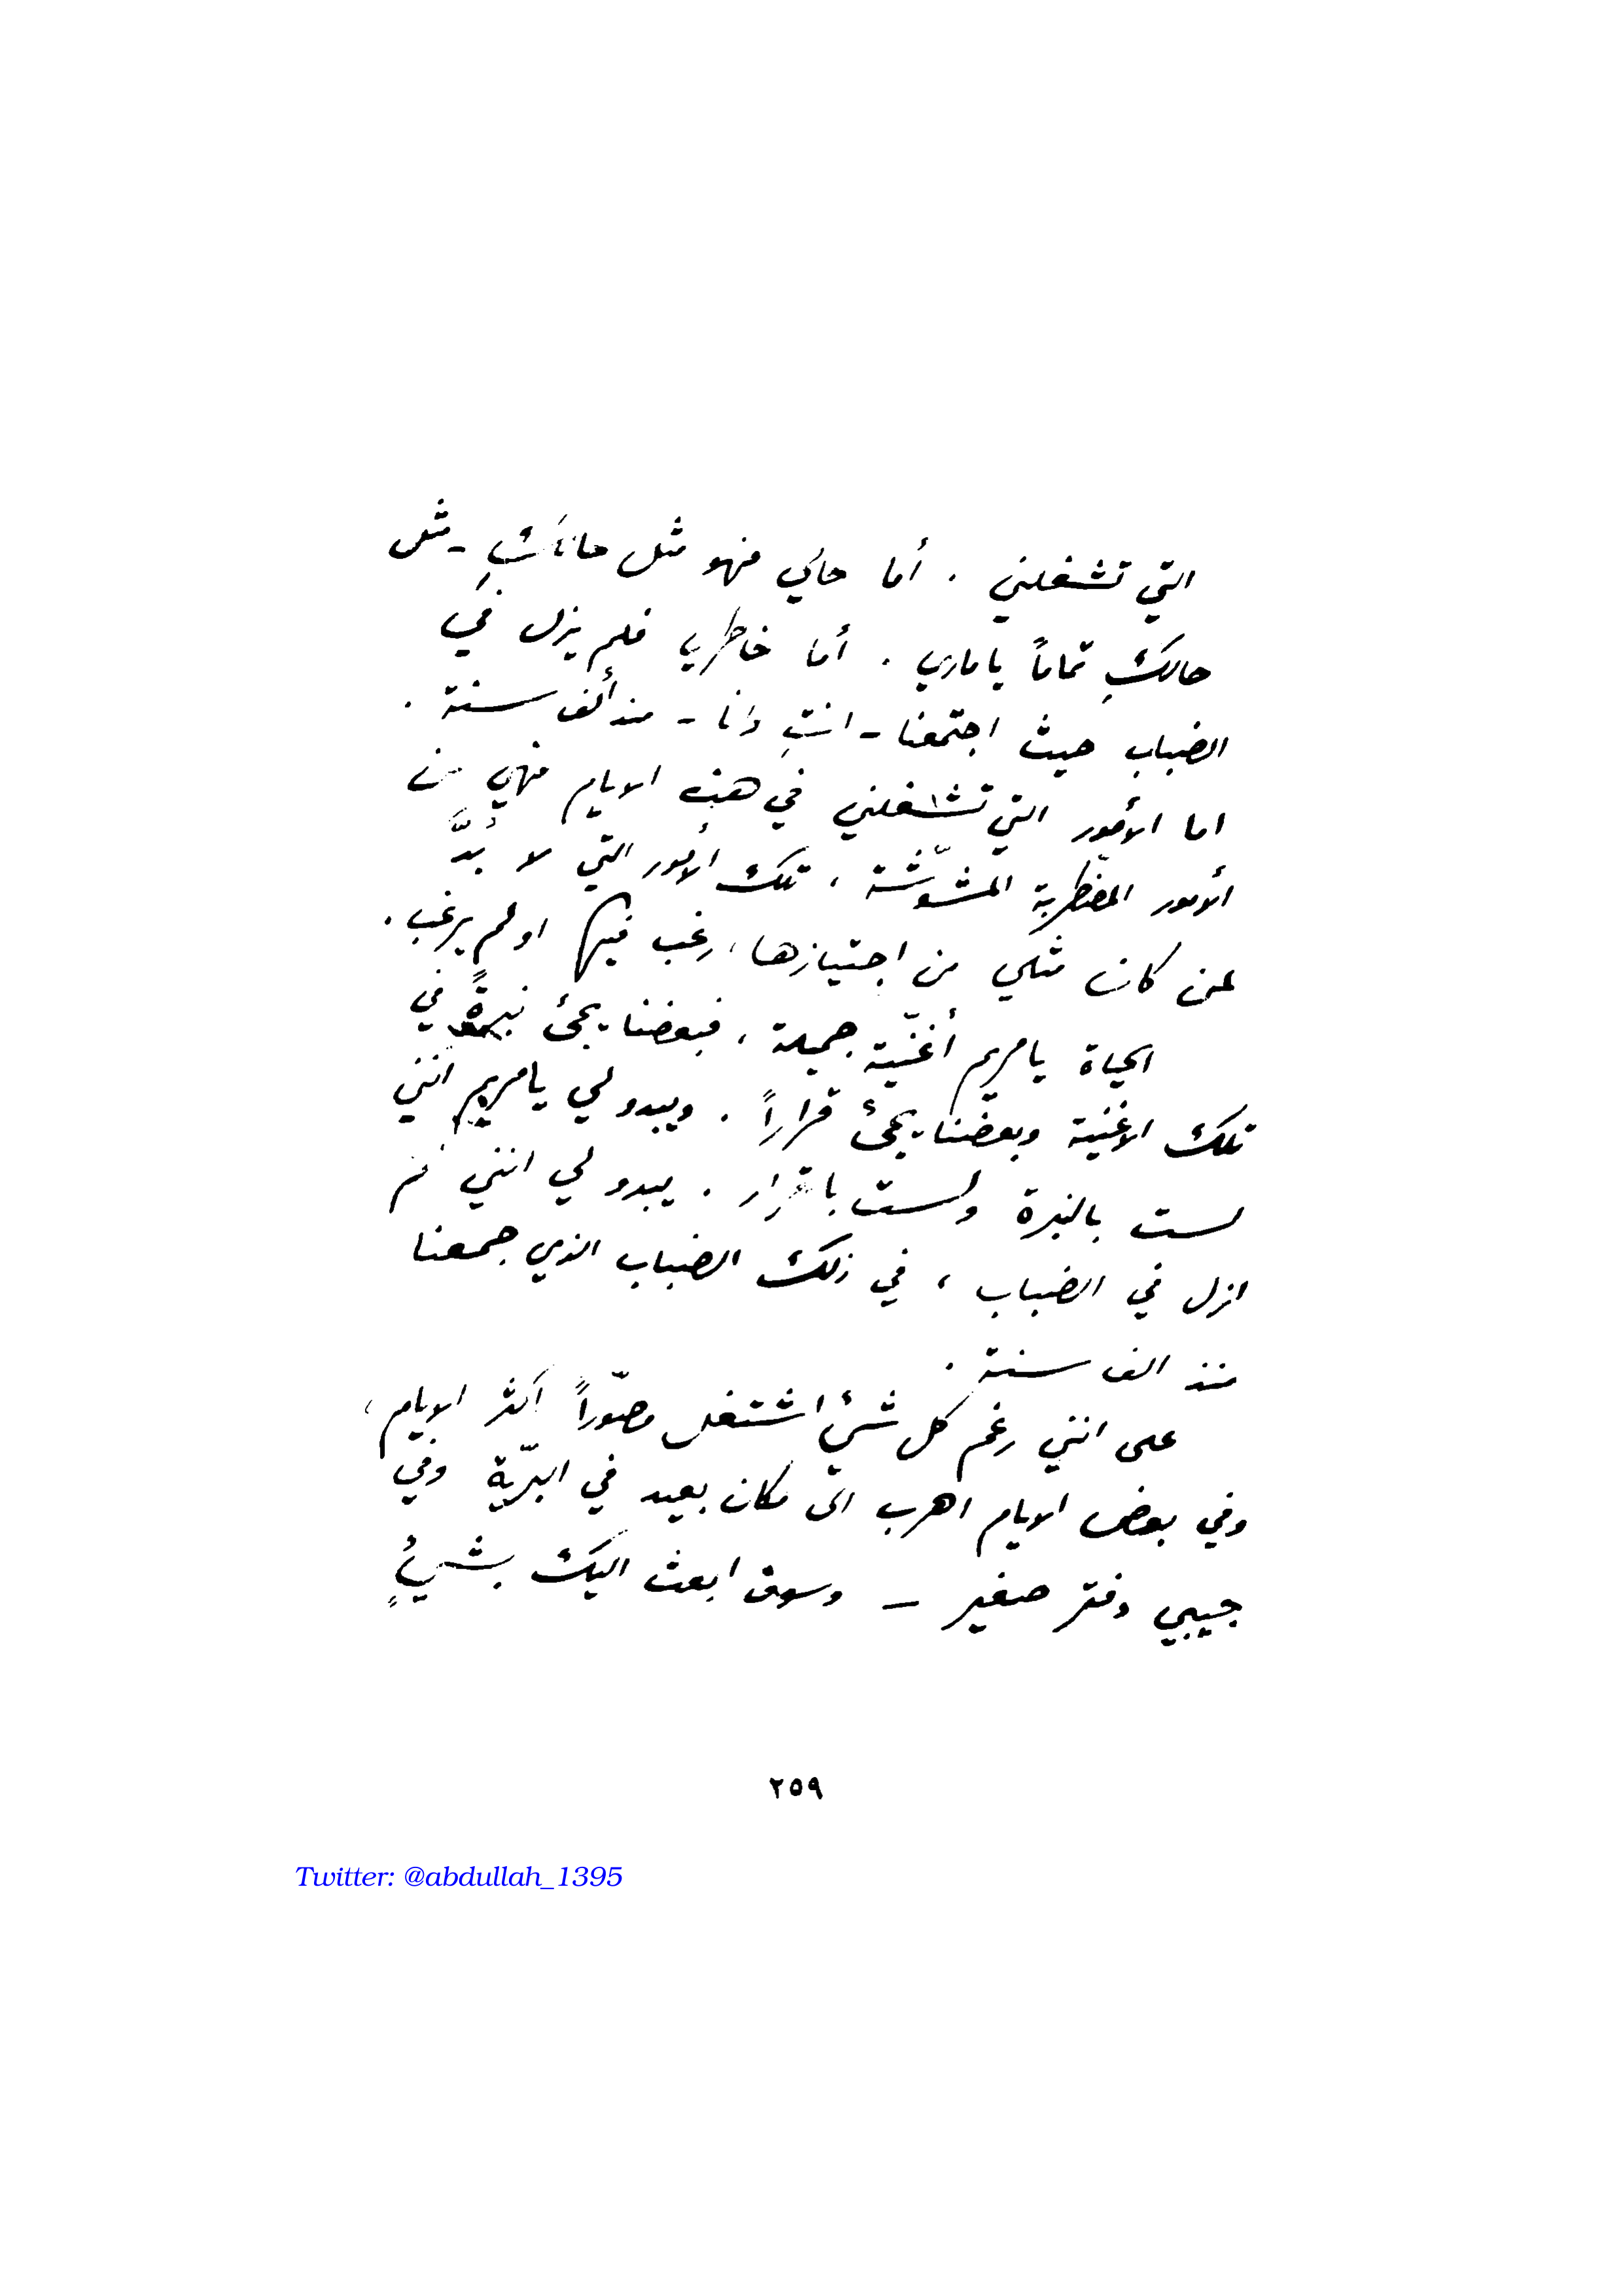 التي تشغلني . أما حالي فهو مثل حالكِ - مثل
حالكِ تماماً يا ماري . أما خاطري فلم يزل في
الضباب حيث اجتمعنا - انتِ وانا - منذ ألف سنة .
اما الأمور التي تشغلني في هذه الايام فهي من
ألامور المضطربة المشوّشة ، تلك الأمور التي لا بُدَّ
لمن كان مثلي من اجتيازها ، رغب فيها او لم يرغب .
الحياة يا مريم أغنّية جميلة ، فبعضنا يجئ نبرةً في
تلك الاغنية وبعضنا يجئ قراراً . ويبدو لي يا مريم انني
لست بالنبرة ولست بالقرار . يبدو لي انني لم
ازل في الضباب ، في ذلك الضباب الذي جمعنا
منذ الف سنة .
على انني رغم كل شيء اشتغل مصوّراً اكثر الايام ،
وفي بعض الايام اهرب الى مكان بعيد في البرّية وفي
جيبي دفتر صغير – وسوف ابعث اليك بشيءٍ
٢٥٩
Twitter: @abdullah_1395